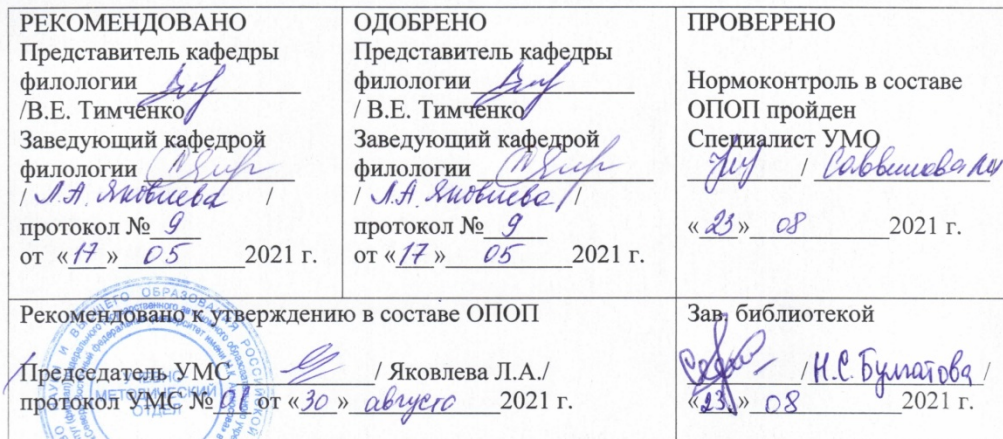 РЕКОМЕНДОВАНО
Представитель кафедры
филологии
/В.Е. Тимченко
Заведующий кафедрой
филологии
/ Л.А. Яковлева /
протокол № 9
от «17» 05 2021 г.
ОДОБРЕНО
Представитель кафедры
филологии
/ В.Е. Тимченко
Заведующий кафедрой
филологии
/ Л.А. Яковлева /
протокол № 9
от «17» 05 2021 г.
ПРОВЕРЕНО
Нормоконтроль в составе
ОПОП пройден
Специалист УМО
/
«23» 08 2021 г.
Рекомендовано к утверждению в составе ОПОП
Председатель УМС / Яковлева Л.А./
протокол УМС № от «30» августа 2021 г.
Зав. библиотекой
/ Н.С. Булгатова /
«23» 08 2021 г.
УЧЕБНО
МЕТОДИЧЕСКИЙ
ОТДЕЛ